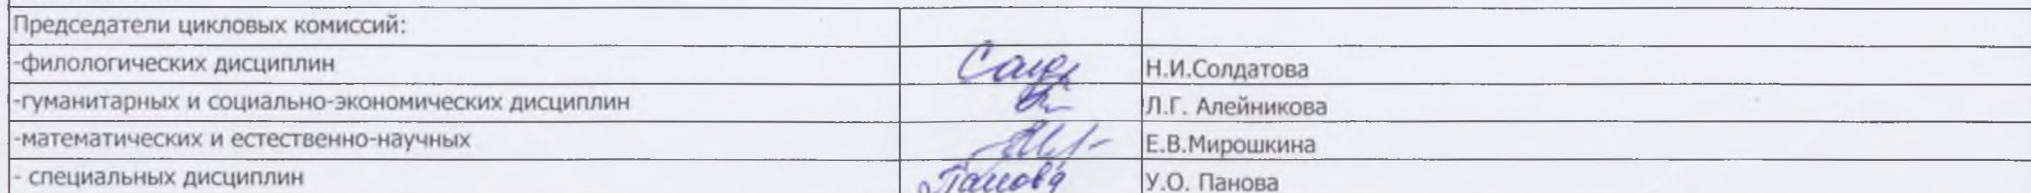 Председатели цикловых комиссий:
-филологических дисциплин Н.И.Солдатова
-гуманитарных и социально-экономических дисциплин Л.Г. Алейникова
-математических и естественно-научных Е.В.Мирошкина
- специальных дисциплин Панова У.О. Панова